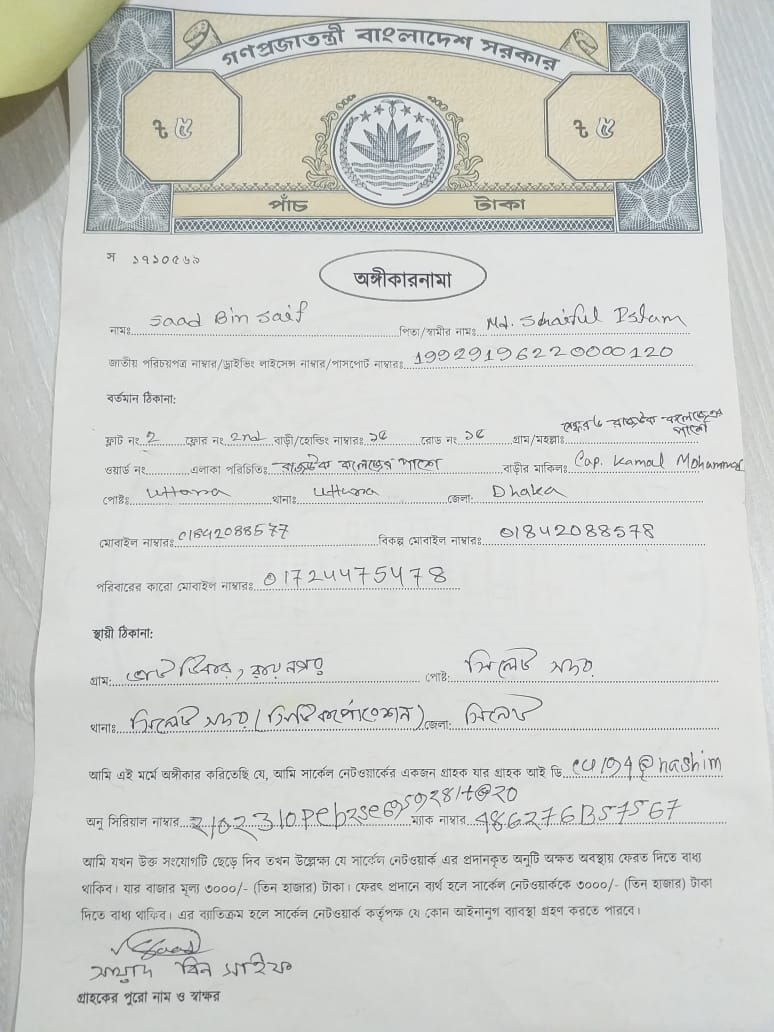 গণপ্রজাতন্ত্রী বাংলাদেশ সরকার
৳ ৫ ৳ ৫
পাঁচ টাকা
স ১৭১০৫৬৯
অঙ্গীকারনামা
নামঃ Saad Bin Saif পিতা/স্বামীর নামঃ Md. Islam
জাতীয় পরিচয়পত্র নাম্বার/ড্রাইভিং লাইসেন্স নাম্বার/পাসপোর্ট নাম্বারঃ 19929196220000120
বর্তমান ঠিকানা:
ফ্লাট নং 2 ফ্লোর নং 2nd বাড়ী/হোল্ডিং নাম্বারঃ ১৫ রোড নং ১৫ গ্রাম/মহল্লাঃ রাজউক কলেজের পাশে
ওয়ার্ড নং এলাকা পরিচিতিঃ রাজউক কলেজের পাশে বাড়ীর মালিকঃ Cap. Kamal Mohammad
পোষ্টঃ Uttara থানাঃ Uttara জেলা: Dhaka
মোবাইল নাম্বারঃ 01842088577 বিকল্প মোবাইল নাম্বারঃ 01842088578
পরিবারের কারো মোবাইল নাম্বারঃ 01724475478
স্থায়ী ঠিকানা:
গ্রাম: পোষ্ট: সিলেট সদর
থানাঃ সিলেট সদর (সিটি কর্পোরেশন) জেলা: সিলেট
আমি এই মর্মে অঙ্গীকার করিতেছি যে, আমি সার্কেল নেটওয়ার্কের একজন গ্রাহক যার গ্রাহক আই ডি @hashim
অনু সিরিয়াল নাম্বার ম্যাক নাম্বার 486276B57567
আমি যখন উক্ত সংযোগটি ছেড়ে দিব তখন উল্লেক্ষ্য যে সার্কেল নেটওয়ার্ক এর প্রদানকৃত অনুটি অক্ষত অবস্থায় ফেরত দিতে বাধ্য
থাকিব। যার বাজার মূল্য ৩০০০/- (তিন হাজার) টাকা। ফেরৎ প্রদানে ব্যর্থ হলে সার্কেল নেটওয়ার্ককে ৩০০০/- (তিন হাজার) টাকা
দিতে বাধ্য থাকিব। এর ব্যতিক্রম হলে সার্কেল নেটওয়ার্ক কর্তৃপক্ষ যে কোন আইনানুগ ব্যবস্থা গ্রহণ করতে পারবে।
Saad
সায়াদ বিন সাইফ
গ্রাহকের পুরো নাম ও স্বাক্ষর